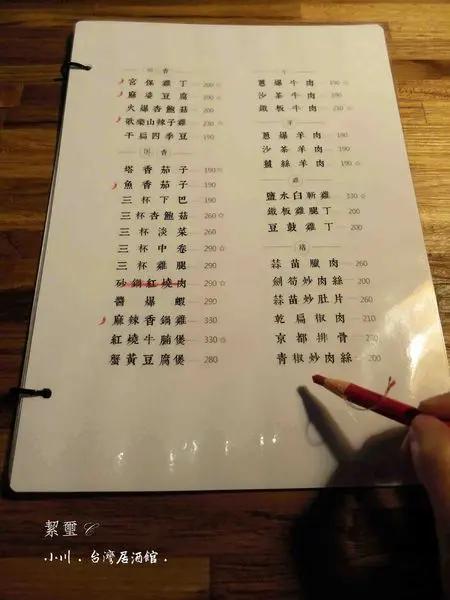 香
宮保雞丁 200 ☆
麻婆豆腐 190 ☆
火爆杏鮑菇 200
歌樂山辣子雞 230 ☆
干扁四季豆 190
香
塔香茄子 190 ☆
魚香茄子 190
三杯下巴 190
三杯杏鮑菇 260 ☆
三杯淡菜 260
三杯中卷 290 ☆
三杯雞腿 290
砂鍋紅燒肉 290 ☆
醬爆蝦 290
麻辣香鍋雞 330
紅燒牛腩煲 330 ☆
蟹黃豆腐煲 280
牛
蔥爆牛肉 190 ☆
沙茶牛肉 190
鐵板牛肉 230 ☆
羊
蔥爆羊肉 190
沙茶羊肉 190
薑絲羊肉 190 ☆
雞
鹽水白斬雞 330 ☆
鐵板雞腿丁 200
豆鼓雞丁 200
豬
蒜苗臘肉 260
劍筍炒肉絲 200
蒜苗炒肚片 260
乾扁椒肉 210
京都排骨 270
青椒炒肉絲 200
絜璽 C
小川．台灣居酒館．